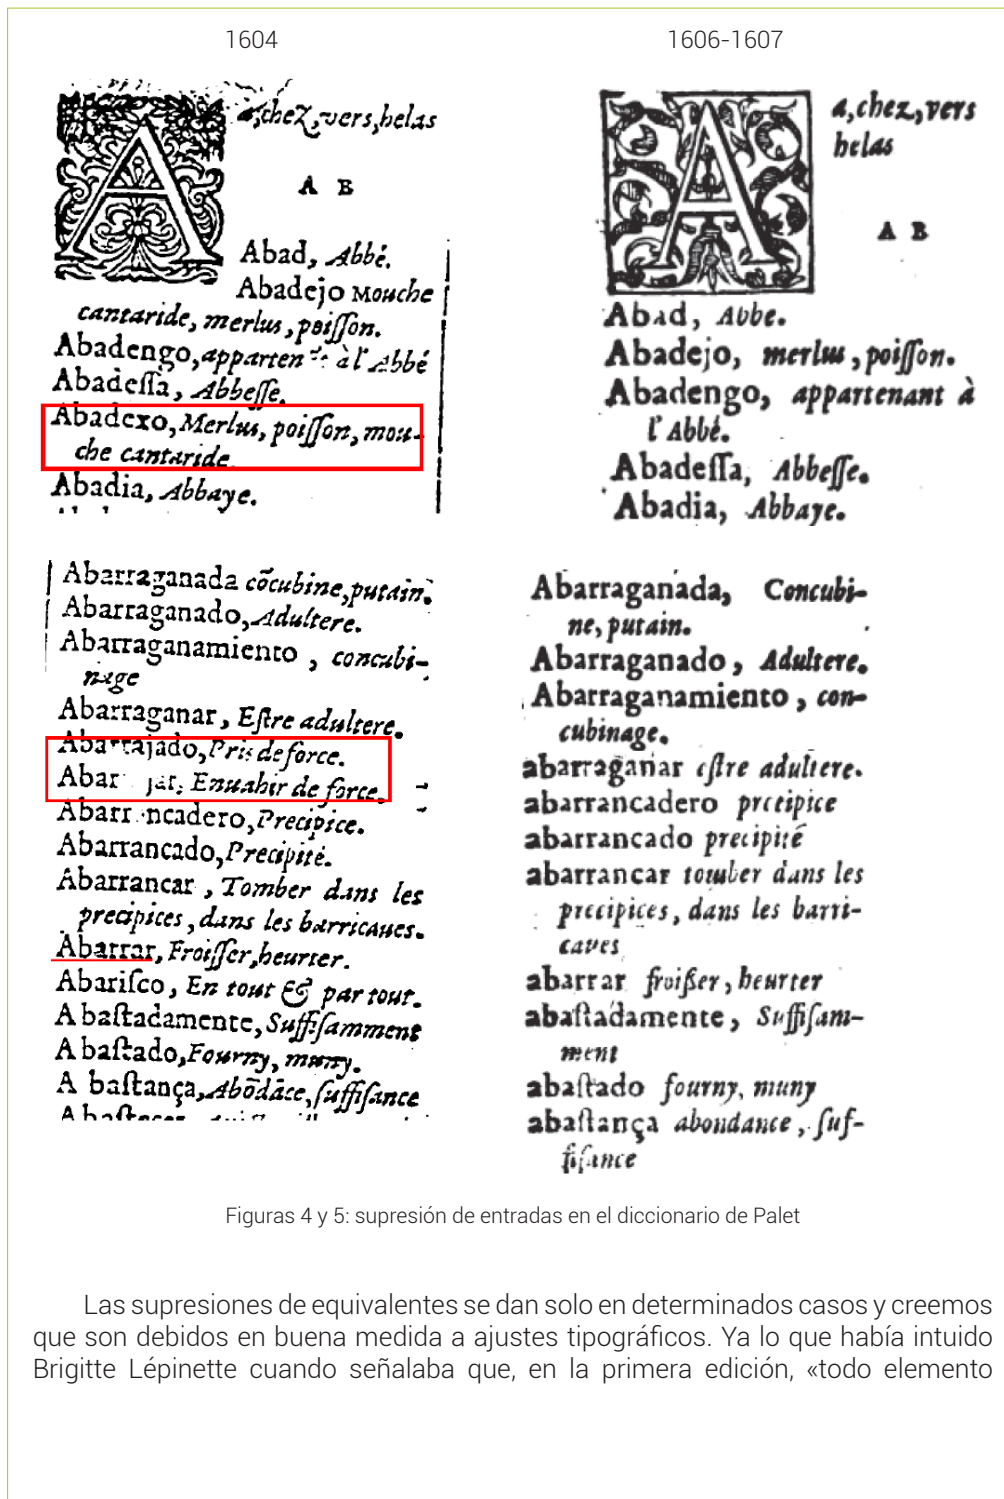 1604
a, chez, vers, helas
A B
Abad, Abbé.
Abadejo Mouche
cantaride, merlus, poiſſon.
Abadengo, apparten à l'Abbé
Abadeſſa, Abbeſſe.
Abadexo, Merlus, poiſſon, mou-
che cantaride
Abadia, Abbaye.
1606-1607
A
a, chez, vers
helas
A B
Abad, Abbe.
Abadejo, merlus, poiſſon.
Abadengo, appartenant à
l'Abbé.
Abadeſſa, Abbeſſe.
Abadia, Abbaye.
Abarraganada cõcubine, putain.
Abarraganado, Adultere.
Abarraganamiento, concubi-
nage
Abarraganar, Eſtre adultere.
Abarrajado, Pris de force.
Abar jar, Enuahir de force.
Abarr ncadero, Precipice.
Abarrancado, Precipité.
Abarrancar, Tomber dans les
precipices, dans les barricaues.
Abarrar, Froiſſer, heurter.
Abariſco, En tout & par tout.
Abaſtadamente, Suffiſamment
Abaſtado, Fourny, muny.
A baſtança, Abõdãce, ſuffiſance
Abarraganada, Concubi-
ne, putain.
Abarraganado, Adultere.
Abarraganamiento, con-
cubinage.
abarraganar eſtre adultere.
abarrancadero precipice
abarrancado precipité
abarrancar tomber dans les
precipices, dans les barri-
caves
abarrar froißer, heurter
abaſtadamente, Suffiſam-
ment
abaſtado fourny, muny
abaſtança abondance, ſuf-
fiſance
Figuras 4 y 5: supresión de entradas en el diccionario de Palet
Las supresiones de equivalentes se dan solo en determinados casos y creemos
que son debidos en buena medida a ajustes tipográficos. Ya lo que había intuido
Brigitte Lépinette cuando señalaba que, en la primera edición, «todo elemento